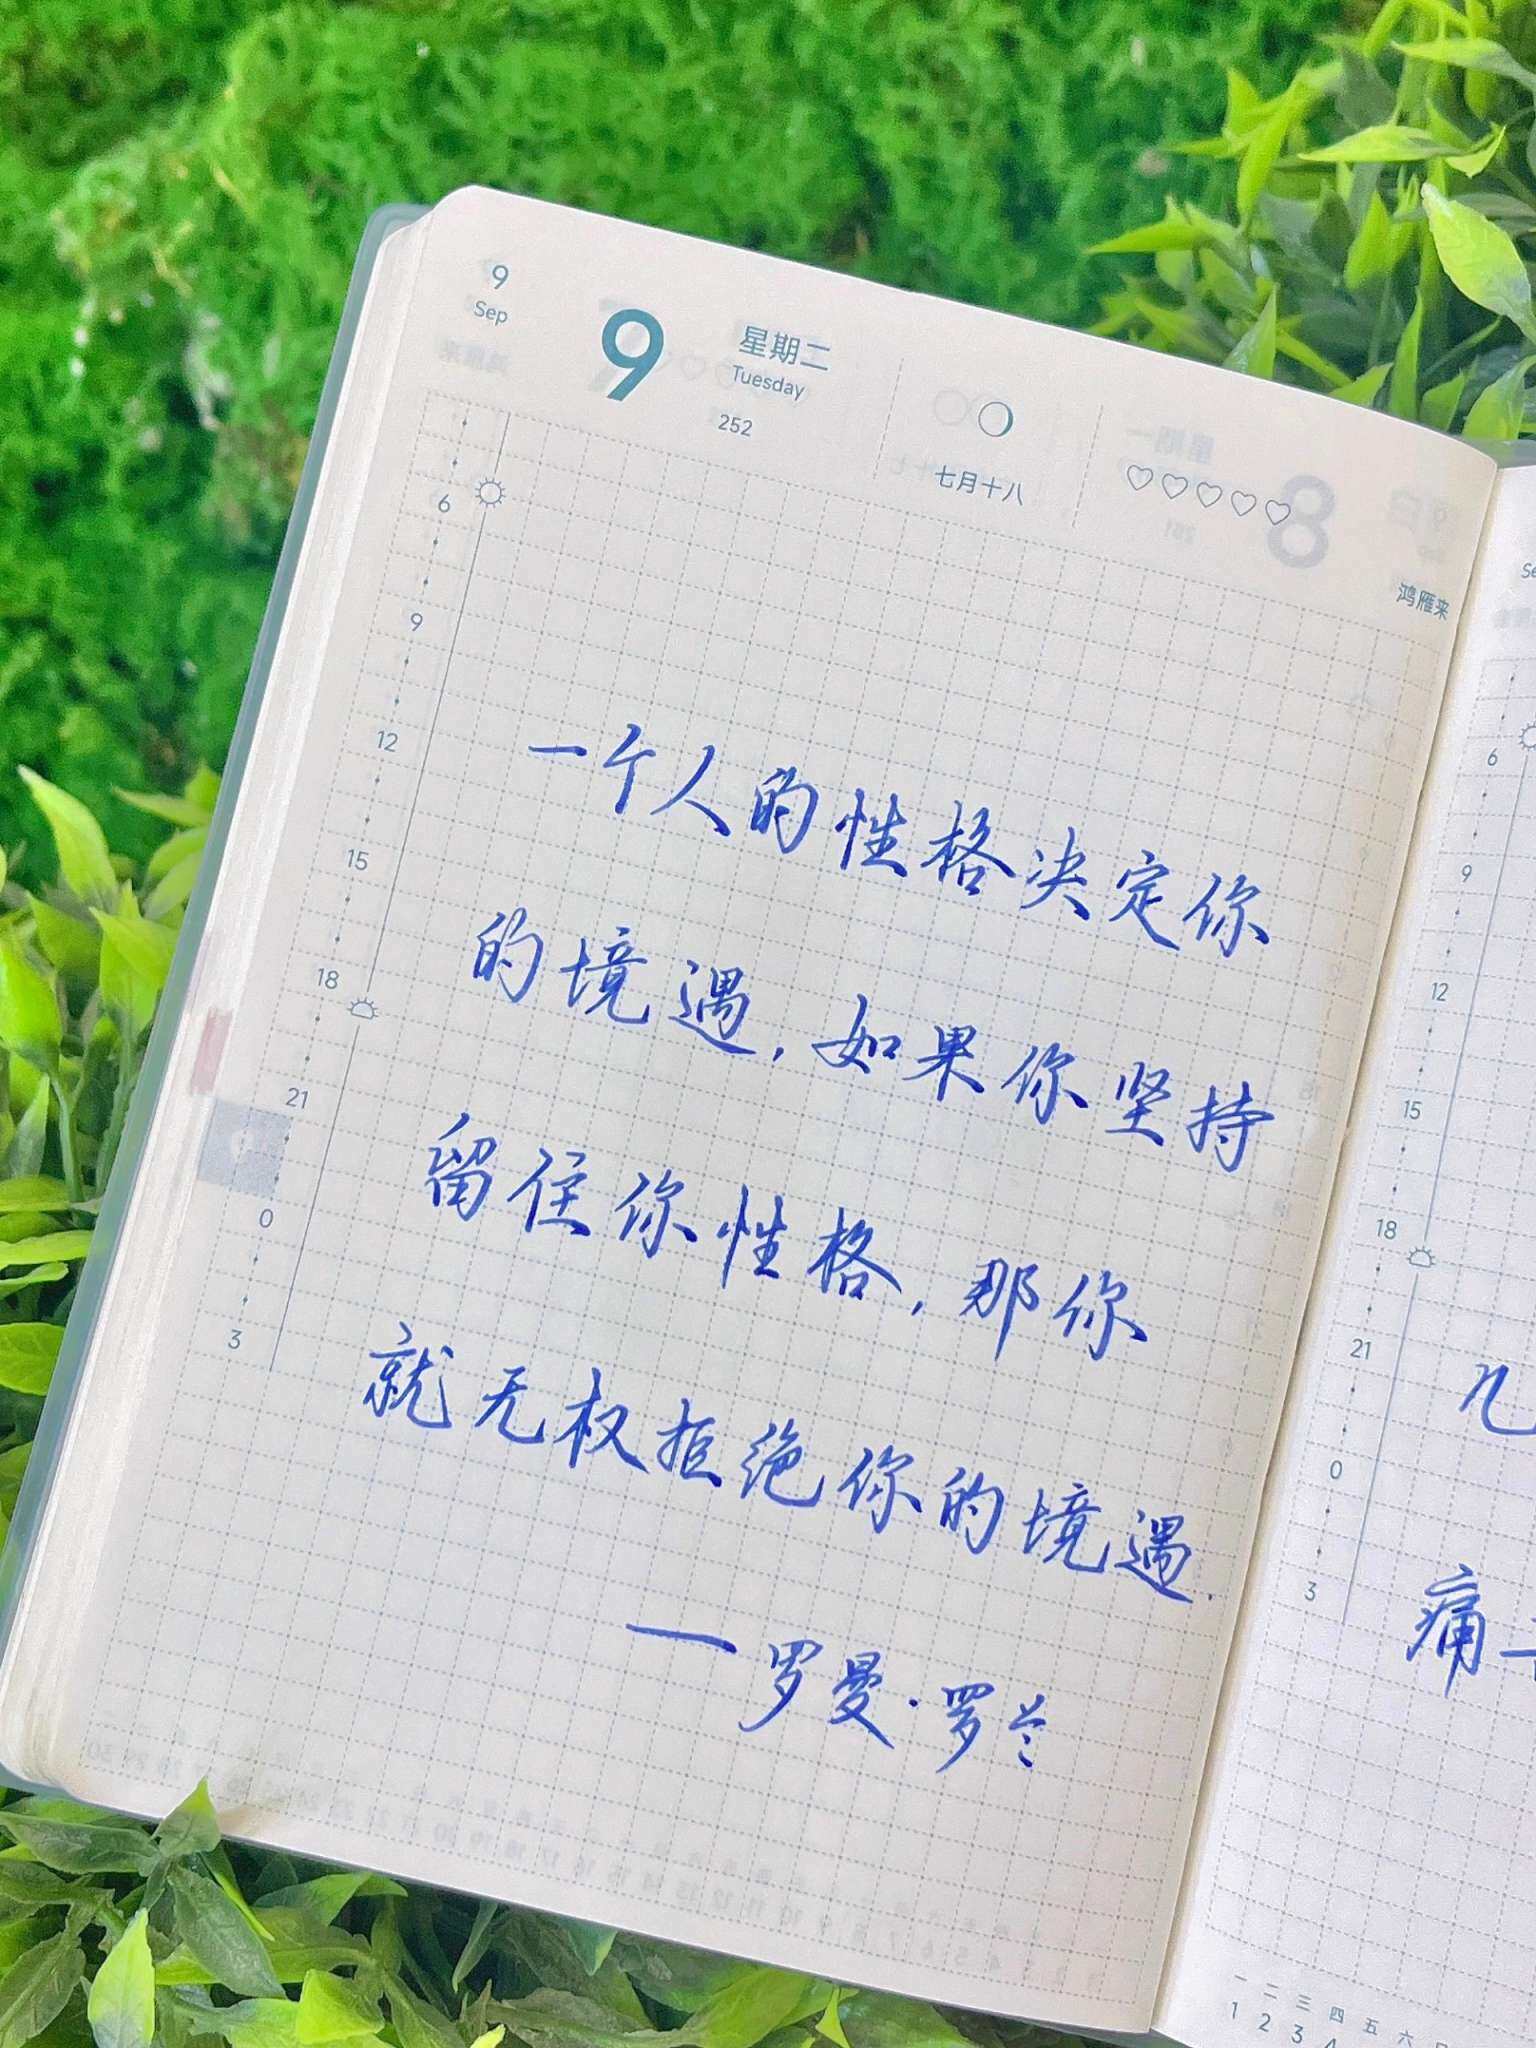 9
Sep
9
星期二
Tuesday
252
七月十八
鸿雁来
6
9
12
15
18
21
0
3
一个人的性格决定你
的境遇，如果你坚持
留住你性格，那你
就无权拒绝你的境遇.
——罗曼·罗兰
6
9
12
15
18
21
0
3
几
痛
一 二 三 四 五 六 日
1 2 3 4